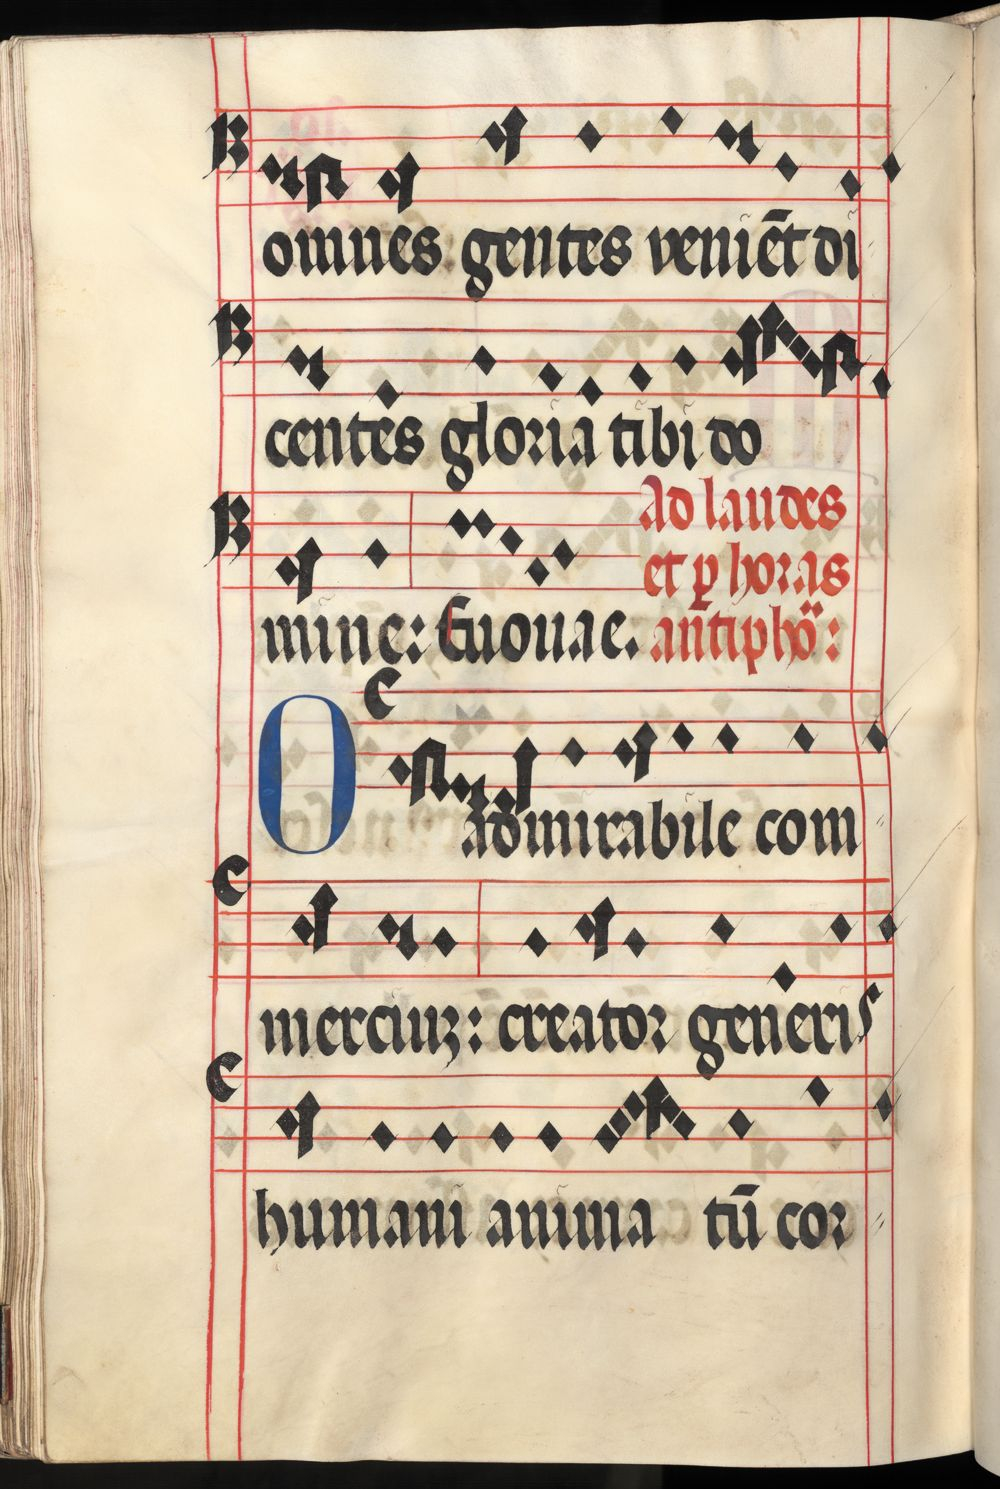 omnes gentes veniēt di
centes gloria tibi do
mine: Euouae. Ad laudes
et ꝑ horas
antiphõ:
O admirabile com
merciuꝫ: creator generis
humani anima tū cor